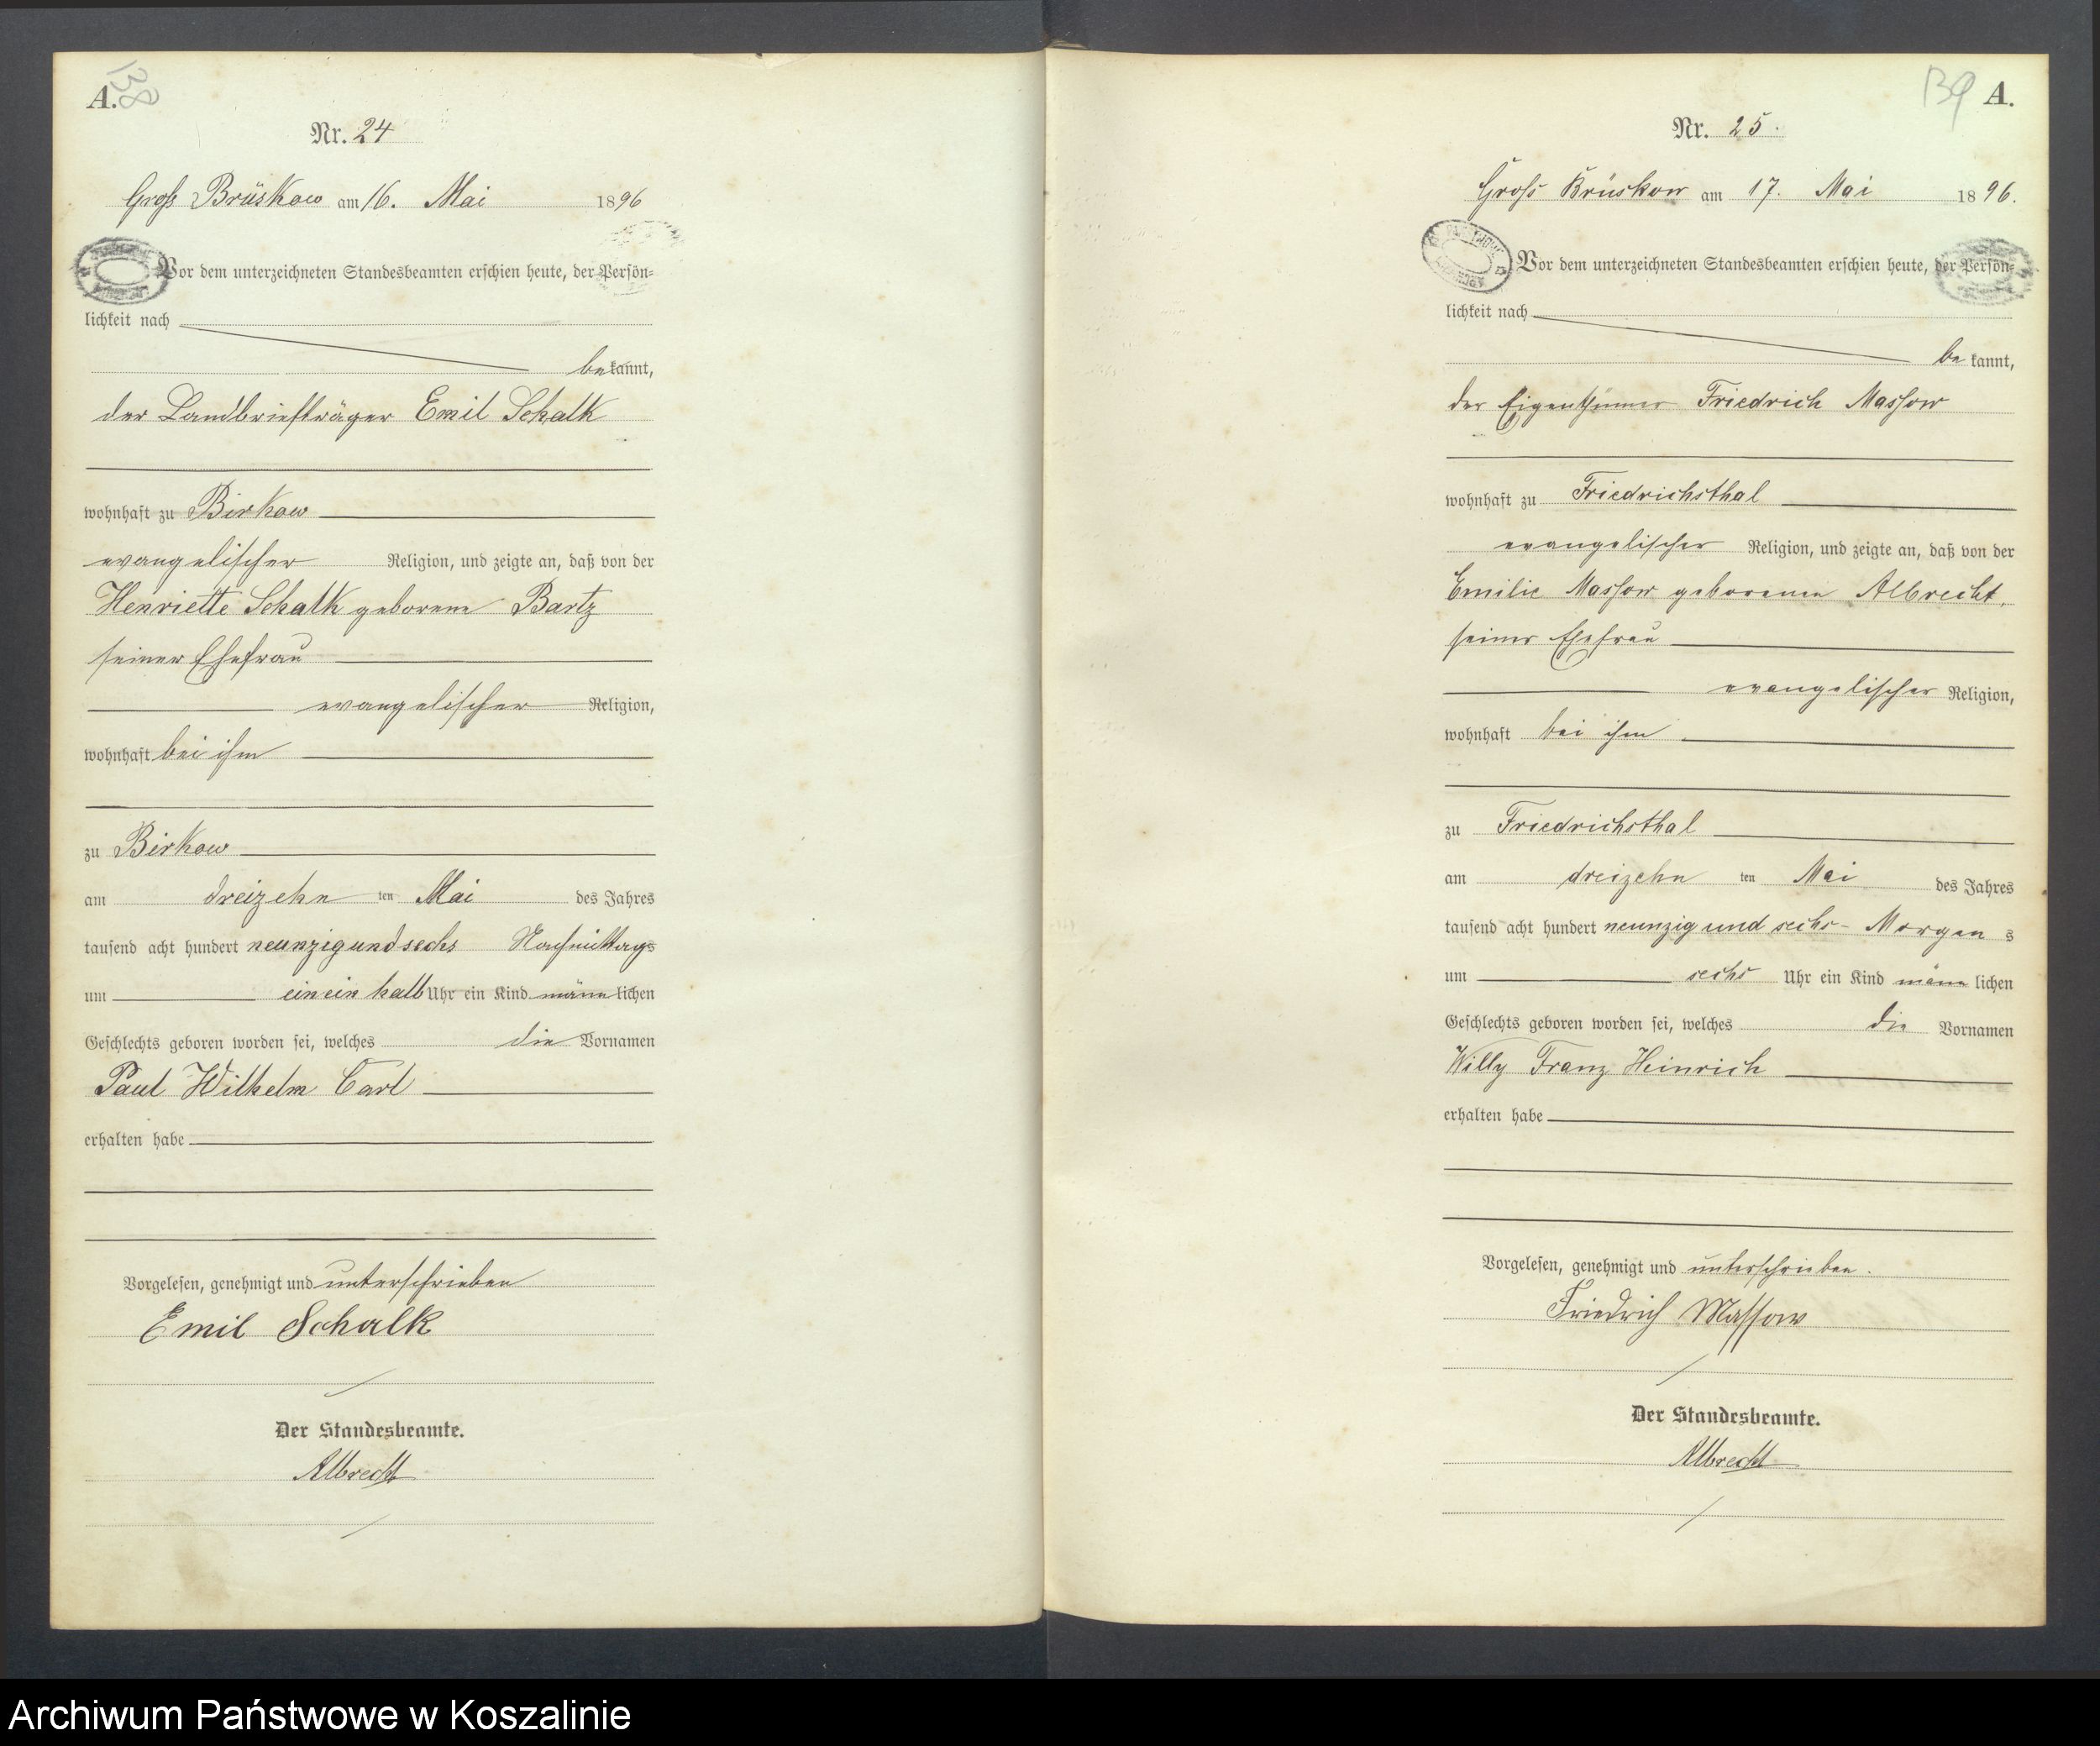 A.
138
Nr. 24
Groß Brüskow am 16. Mai 1896
Vor dem unterzeichneten Standesbeamten erschien heute, der Persön=
lichkeit nach
bekannt,
der Landbriefträger Emil Schalk
wohnhaft zu Birkow
evangelischer Religion, und zeigte an, daß von der
Henriette Schalk geborene Bartz
seiner Ehefrau
evangelischer Religion,
wohnhaft bei ihm
zu Birkow
am dreizehn ten Mai des Jahres
tausend acht hundert neunzig und sechs Nachmittags
um ein ein halb Uhr ein Kind männlichen
Geschlechts geboren worden sei, welches die Vornamen
Paul Wilhelm Carl
erhalten habe
Vorgelesen, genehmigt und unterschrieben
Emil Schalk
Der Standesbeamte.
Albrecht
139 A.
Nr. 25.
Groß Brüskow am 17. Mai 1896.
Vor dem unterzeichneten Standesbeamten erschien heute, der Persön=
lichkeit nach
be kannt,
der Eigenthümer Friedrich Massow
wohnhaft zu Friedrichsthal
evangelischer Religion, und zeigte an, daß von der
Emilie Massow geborenen Albrecht,
seiner Ehefrau
evangelischer Religion,
wohnhaft bei ihm
zu Friedrichsthal
am dreizehn ten Mai des Jahres
tausend acht hundert neunzig und sechs Morgens
um sechs Uhr ein Kind männlichen
Geschlechts geboren worden sei, welches die Vornamen
Willy Franz Heinrich
erhalten habe
Vorgelesen, genehmigt und unterschrieben.
Friedrich Massow
Der Standesbeamte.
Albrecht
Archiwum Państwowe w Koszalinie